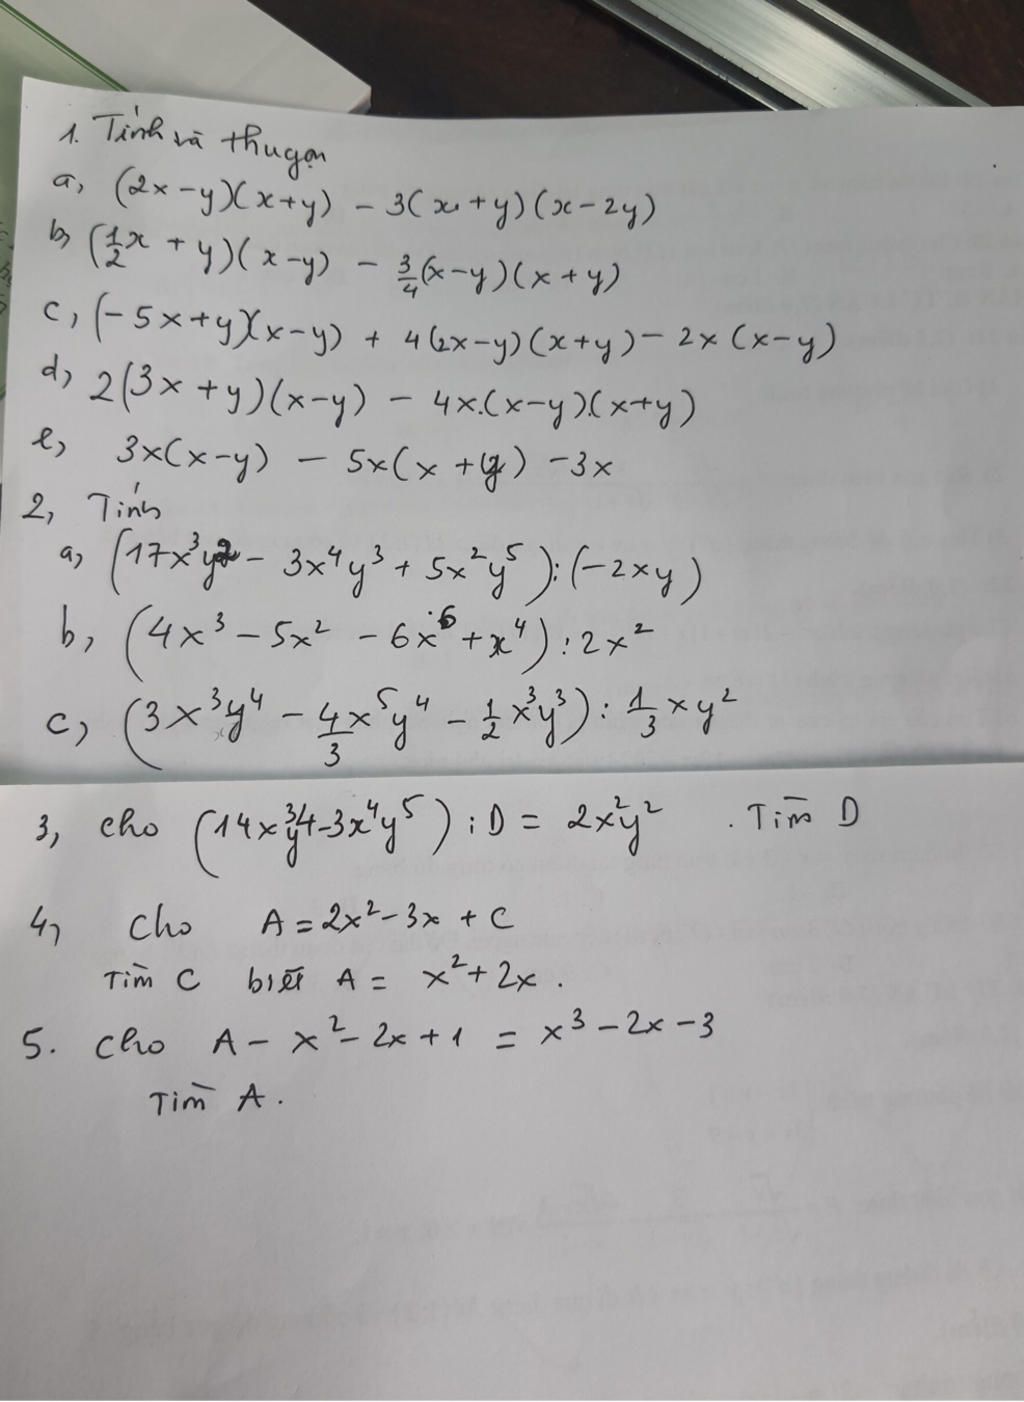 1. Tính và thu gọn
a, (2x-y)(x+y) - 3(x+y)(x-2y)
b, (1/2x + y)(x-y) - 3/4(x-y)(x+y)
c, (-5x+y)(x-y) + 4(2x-y)(x+y) - 2x(x-y)
d, 2(3x+y)(x-y) - 4x.(x-y).(x+y)
e, 3x(x-y) - 5x(x+y) - 3x
2, Tính
a, (17x³y² - 3x⁴y³ + 5x²y⁵) : (-2xy)
b, (4x³ - 5x² - 6x⁶ + x⁴) : 2x²
c, (3x³y⁴ - 4/3x⁵y⁴ - 1/2x³y³) : 1/3xy²
3, Cho (14x³y⁴ - 3x⁴y⁵) : D = 2x²y². Tìm D
4, Cho A = 2x² - 3x + C
Tìm C biết A = x² + 2x.
5. Cho A - x² - 2x + 1 = x³ - 2x - 3
Tìm A.